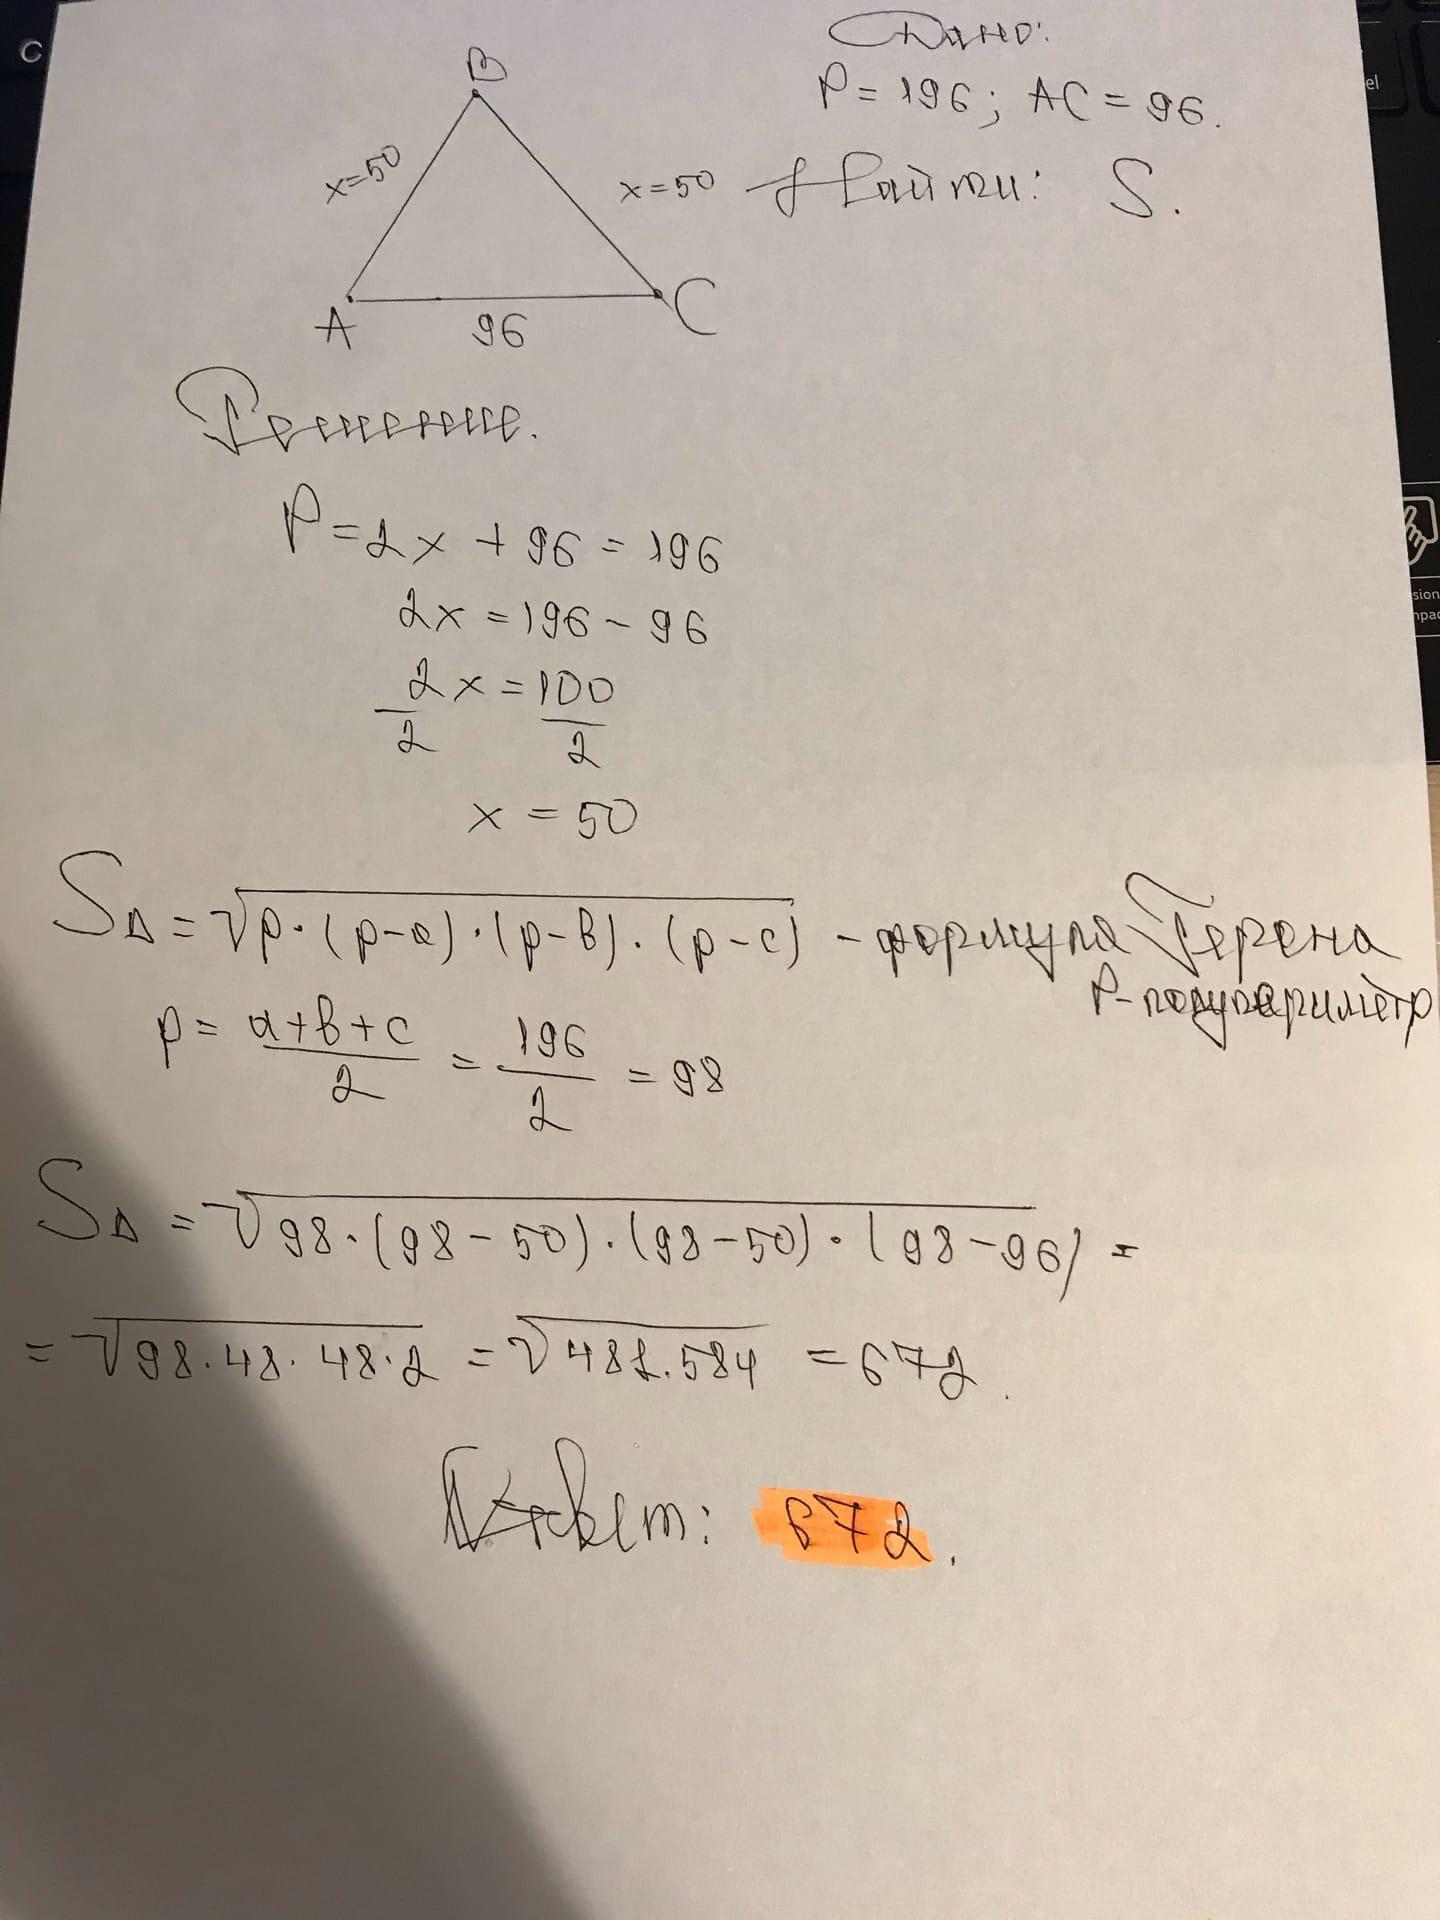 Дано:
P = 196; AC = 96.
Найти: S.
B
x=50
x=50
A
96
C
Решение.
P=2x + 96 = 196
2x = 196 - 96
2x = 100
2 2
x = 50
SΔ = √p·(p-a)·(p-в)·(p-c) - формула Герона
P-полупериметр
p = a+в+c = 196 = 98
2 2
SΔ = √98·(98-50)·(98-50)·(98-96) =
= √98·48·48·2 = √451.584 = 672.
Ответ: 672.
el
sion
mpac